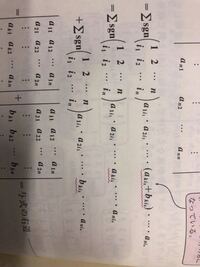 a_{n1} a_{n2} ⋯
なっている、
= Σ sgn ( 1 2 ⋯ n
i_1 i_2 ⋯ i_n ) a_{1i_1} · a_{2i_2} · ⋯ · (a_{ki_k} + b_{ki_k}) · ⋯ · a_{ni_n}
= Σ sgn ( 1 2 ⋯ n
i_1 i_2 ⋯ i_n ) a_{1i_1} · a_{2i_2} · ⋯ · a_{ki_k} · ⋯ · a_{ni_n}
+ Σ sgn ( 1 2 ⋯ n
i_1 i_2 ⋯ i_n ) a_{1i_1} · a_{2i_2} · ⋯ · b_{ki_k} · ⋯ · a_{ni_n}
a_{11} a_{12} ⋯ a_{1n} a_{11} a_{12} ⋯ a_{1n}
a_{21} a_{22} ⋯ a_{2n} a_{21} a_{22} ⋯ a_{2n}
⋮ ⋮ ⋮ ⋮ ⋮ ⋮
= a_{k1} a_{k2} ⋯ a_{kn} + b_{k1} b_{k2} ⋯ b_{kn}